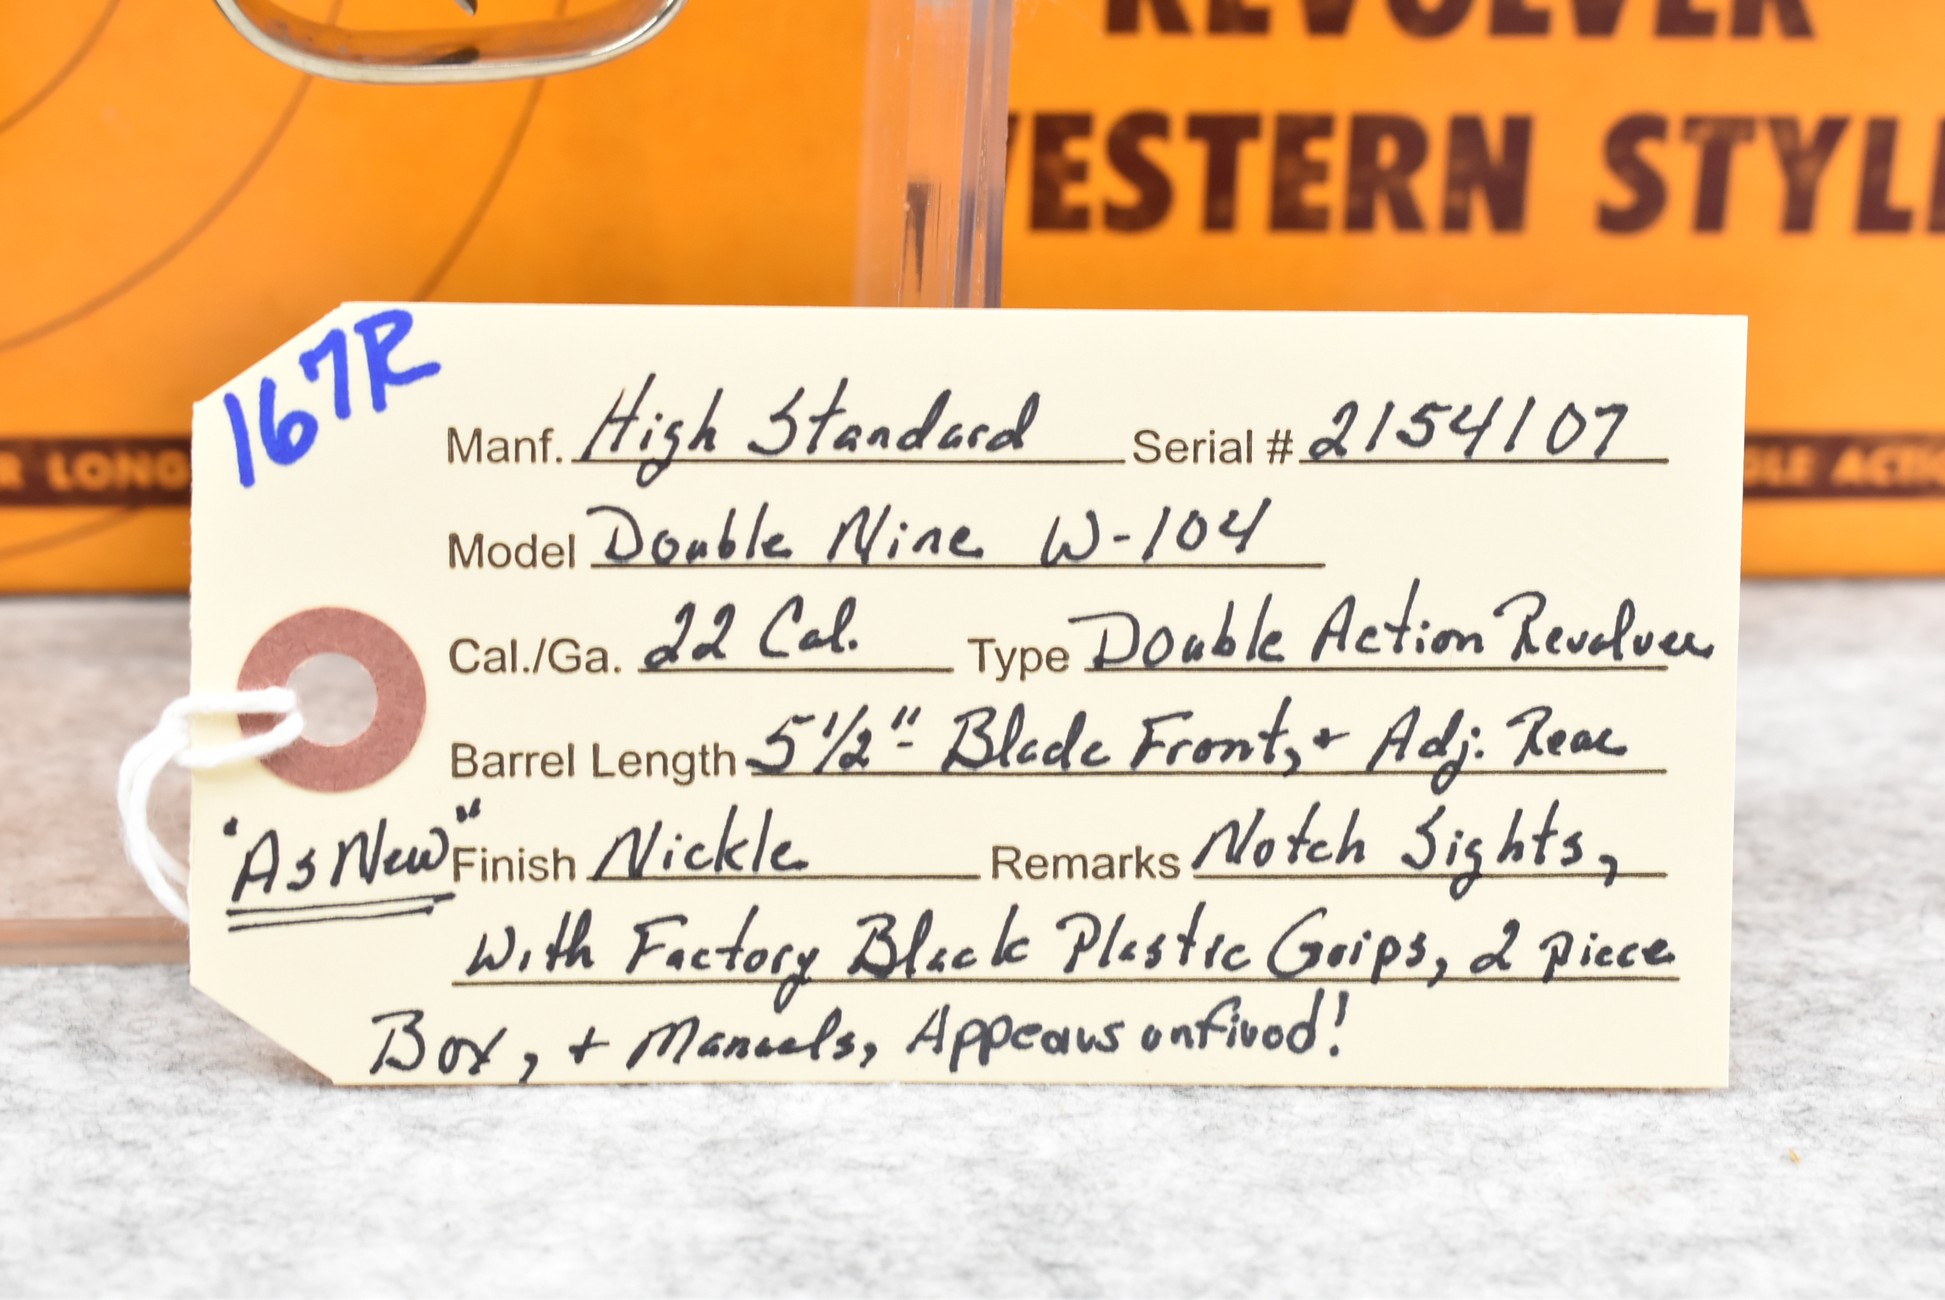 REVOLVER
WESTERN STYLE
R LONG
GLE ACTIO
167R
Manf. High Standard Serial # 2154107
Model Double Nine W-104
Cal./Ga. 22 Cal. Type Double Action Revolver
Barrel Length 5 1/2" - Blade Front, + Adj. Rear
"As New" Finish Nickle Remarks Notch Sights,
With Factory Black Plastic Grips, 2 piece
Box, + Manuals, Appears unfired!